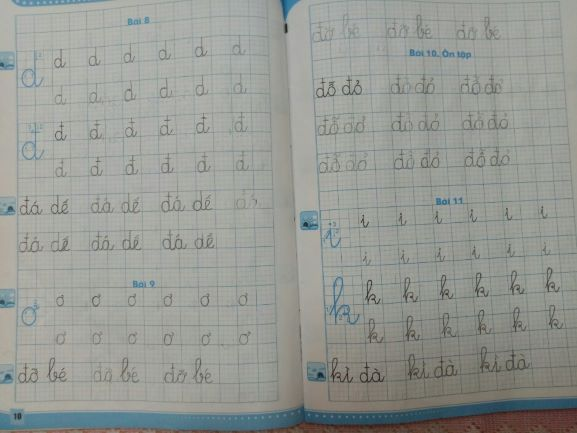 Bài 8
d d d d d d d
d d d d d d
đ đ đ đ đ đ đ
đ đ đ đ đ đ
đá dế đá dế đá dế đá
đá dế đá dế đá dế
Bài 9
ơ ơ ơ ơ ơ ơ ơ
ơ ơ ơ ơ ơ ơ
đỡ bé đỡ bé đỡ bé
10
đỡ bé đỡ bé đỡ bé
Bài 10. Ôn tập
đỗ đỏ đỗ đỏ đỗ đỏ
đỗ đỏ đỗ đỏ đỗ đỏ
đỗ đỏ đỗ đỏ đỗ đỏ
Bài 11
i i i i i i i
i i i i i i
k k k k k k k
k k k k k k
kì đà kì đà kì đà